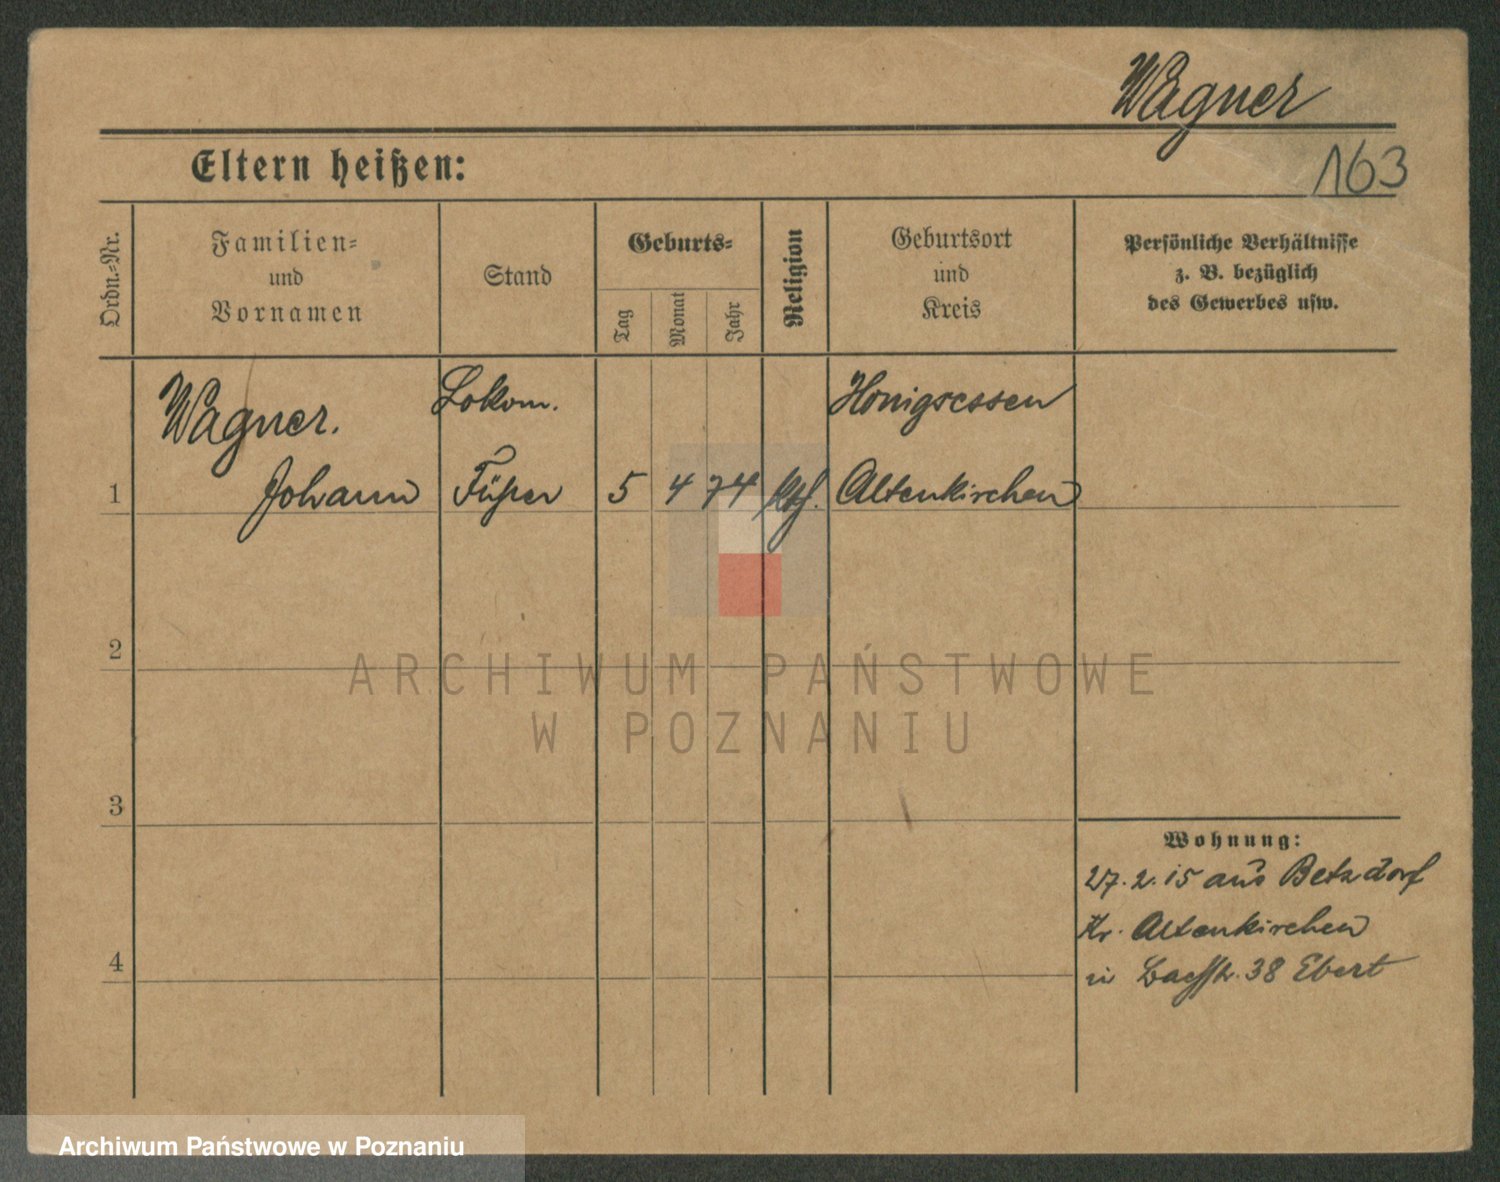 Wagner
163
Eltern heißen:
Ordn.-Nr.
Familien-
und
Vornamen
Stand
Geburts-
Tag
Monat
Jahr
Religion
Geburtsort
und
Kreis
Persönliche Verhältnisse
z. B. bezüglich
des Gewerbes usw.
Wagner. Lokom. Honigsessen
1 Johann Führer 5 4 74 kth. Altenkirchen
2
3
4
Wohnung:
27.2.15 aus Betzdorf
Kr. Altenkirchen
in 38 Ebert
ARCHIWUM PAŃSTWOWE
W POZNANIU
Archiwum Państwowe w Poznaniu